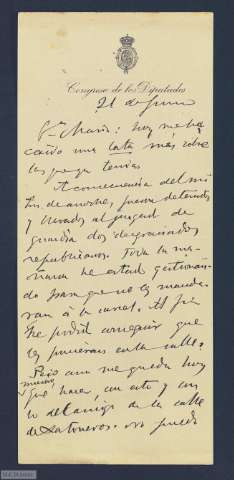 Congreso de los Diputados
21 de Junio
Sra María: hoy me ha
caído una lata más sobre
las que ya tenía.
A consecuencia del
de anoche, fueron detenidos
y llevados al juzgado de
guardia dos desgraciados
republicanos. Toda la ma-
ñana he estado gestionan-
do para que no les manda-
ran á la carcel. Al fin
he podido conseguir que
les pusieran en la calle.
Pero aun me queda hoy
mucho que hacer, con esto y con
lo del amigo de la calle
de Latoneros. No puedo